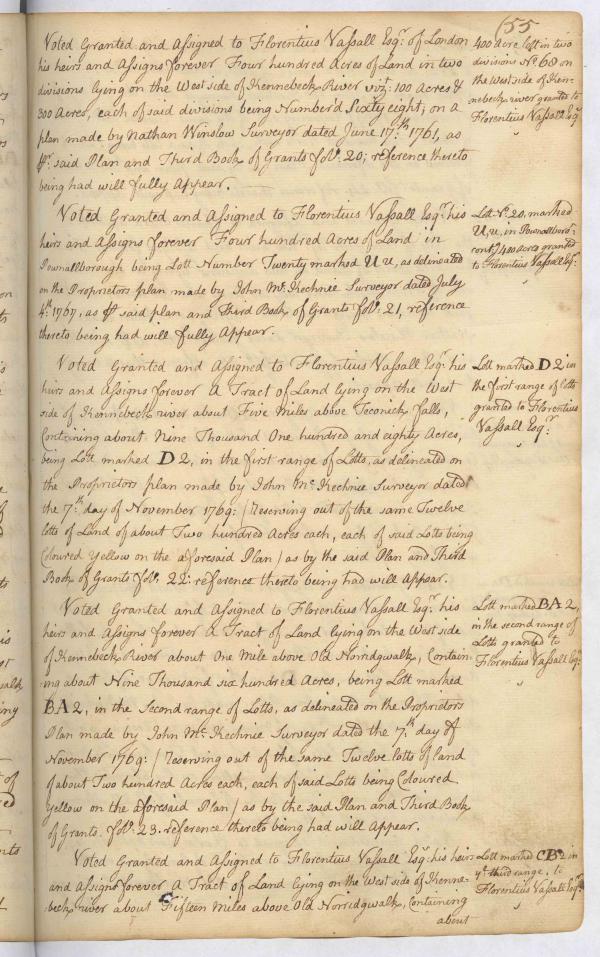 155
Voted Granted and Assigned to Florentius Vassall Esqr. of London
his heirs and Assigns forever Four hundred Acres of Land in two
divisions lying on the West side of Kennebeck River vizt: 100 Acres &
300 Acres, each of said divisions being Number'd Sixty eight; on a
plan made by Nathan Winslow Surveyor dated June 17th. 1761, as
pr. said Plan and Third Book of Grants folo. 20; reference thereto
being had will fully Appear.
400 Acre lott in two
divisions No. 68 on
the West side of Ken-
nebeck river granted to
Florentius Vassall Esqr
Voted Granted and Assigned to Florentius Vassall Esqr. his
heirs and Assigns forever Four hundred Acres of Land in
Pownallborough being Lott Number Twenty marked U u, as delineated
on the Proprietors plan made by John Mc. Kechnie Surveyor dated July
4th. 1767, as pr said plan and Third Book of Grants folo. 21, reference
thereto being had will fully Appear.
Lott No. 20, marked
U, u, in Pownallboro'
contg. 400 acres granted
to Florentius Vassall Esqr.
Voted Granted and Assigned to Florentius Vassall Esqr. his
heirs and Assigns forever A Tract of Land lying on the West
side of Kennebeck river about Five Miles above Teconick falls,
Containing about Nine Thousand One hundred and eighty Acres,
being Lott marked D 2, in the first range of Lotts, as delineated on
the Proprietors plan made by John Mc. Kechnie Surveyor dated
the 7th. day of November 1769: / Reserving out of the same Twelve
lotts of Land of about Two hundred Acres each, each of said Lotts being
Coloured Yellow on the aforesaid Plan / as by the said Plan and Third
Book of Grants folo. 22: reference thereto being had will appear.
Lott marked D 2 in
the first range of lotts
granted to Florentius
Vassall Esqr.
Voted Granted and Assigned to Florentius Vassall Esqr. his
heirs and Assigns forever A Tract of Land lying on the West side
of Kennebeck River about One Mile above Old Norridgwalk, Contain-
ing about Nine Thousand six hundred Acres, being Lott marked
BA 2, in the Second range of Lotts, as delineated on the Proprietors
Plan made by John Mc. Kechnie Surveyor dated the 7th. day of
November 1769: / Reserving out of the same Twelve lotts of land
of about Two hundred Acres each, each of said Lotts being Coloured
Yellow on the aforesaid Plan / as by the said Plan and Third Book
of Grants. folo. 23. reference thereto being had will Appear.
Lott marked BA 2,
in the second range of
Lotts granted to
Florentius Vassall Esqr.
Voted Granted and Assigned to Florentius Vassall Esqr. his heirs
and Assigns forever A Tract of Land lying on the West side of Kenne-
beck river about Fifteen Miles above Old Norridgwalk, Containing
about
Lott marked CB 2 in
ye. third range, to
Florentius Vassall Esqr.